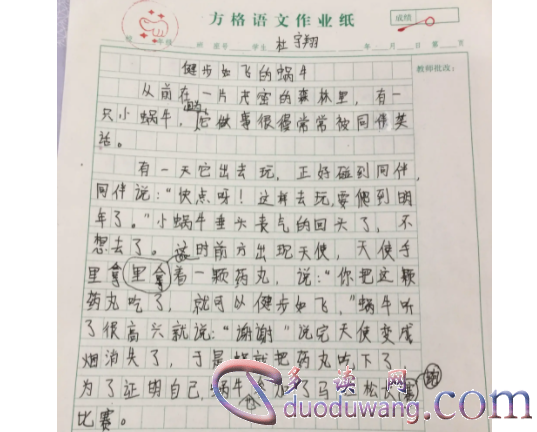 方格语文作业纸
成绩
年级 班 座号 学生 杜宇翔 年 月 日 第 页
教师批改：
健步如飞的蜗牛
从前在一片茂密的森林里，有一
只小蜗牛，它做事很慢常常被同伴笑
话。
有一天它出去玩，正好碰到同伴，
同伴说：“快点呀！这样去玩，要爬到明
年了。”小蜗牛垂头丧气的回头了，不
想去了。这时前方出现天使，天使手
里拿里拿着一颗药丸，说：“你把这颗
药丸吃了，就可以健步如飞，”蜗牛听
了很高兴就说：“谢谢”说完天使变成
烟消失了，于是蜗就把药丸吃下了
为了证明自己，蜗牛参加了马拉松比赛
比赛。
多读网
duoduwang.com